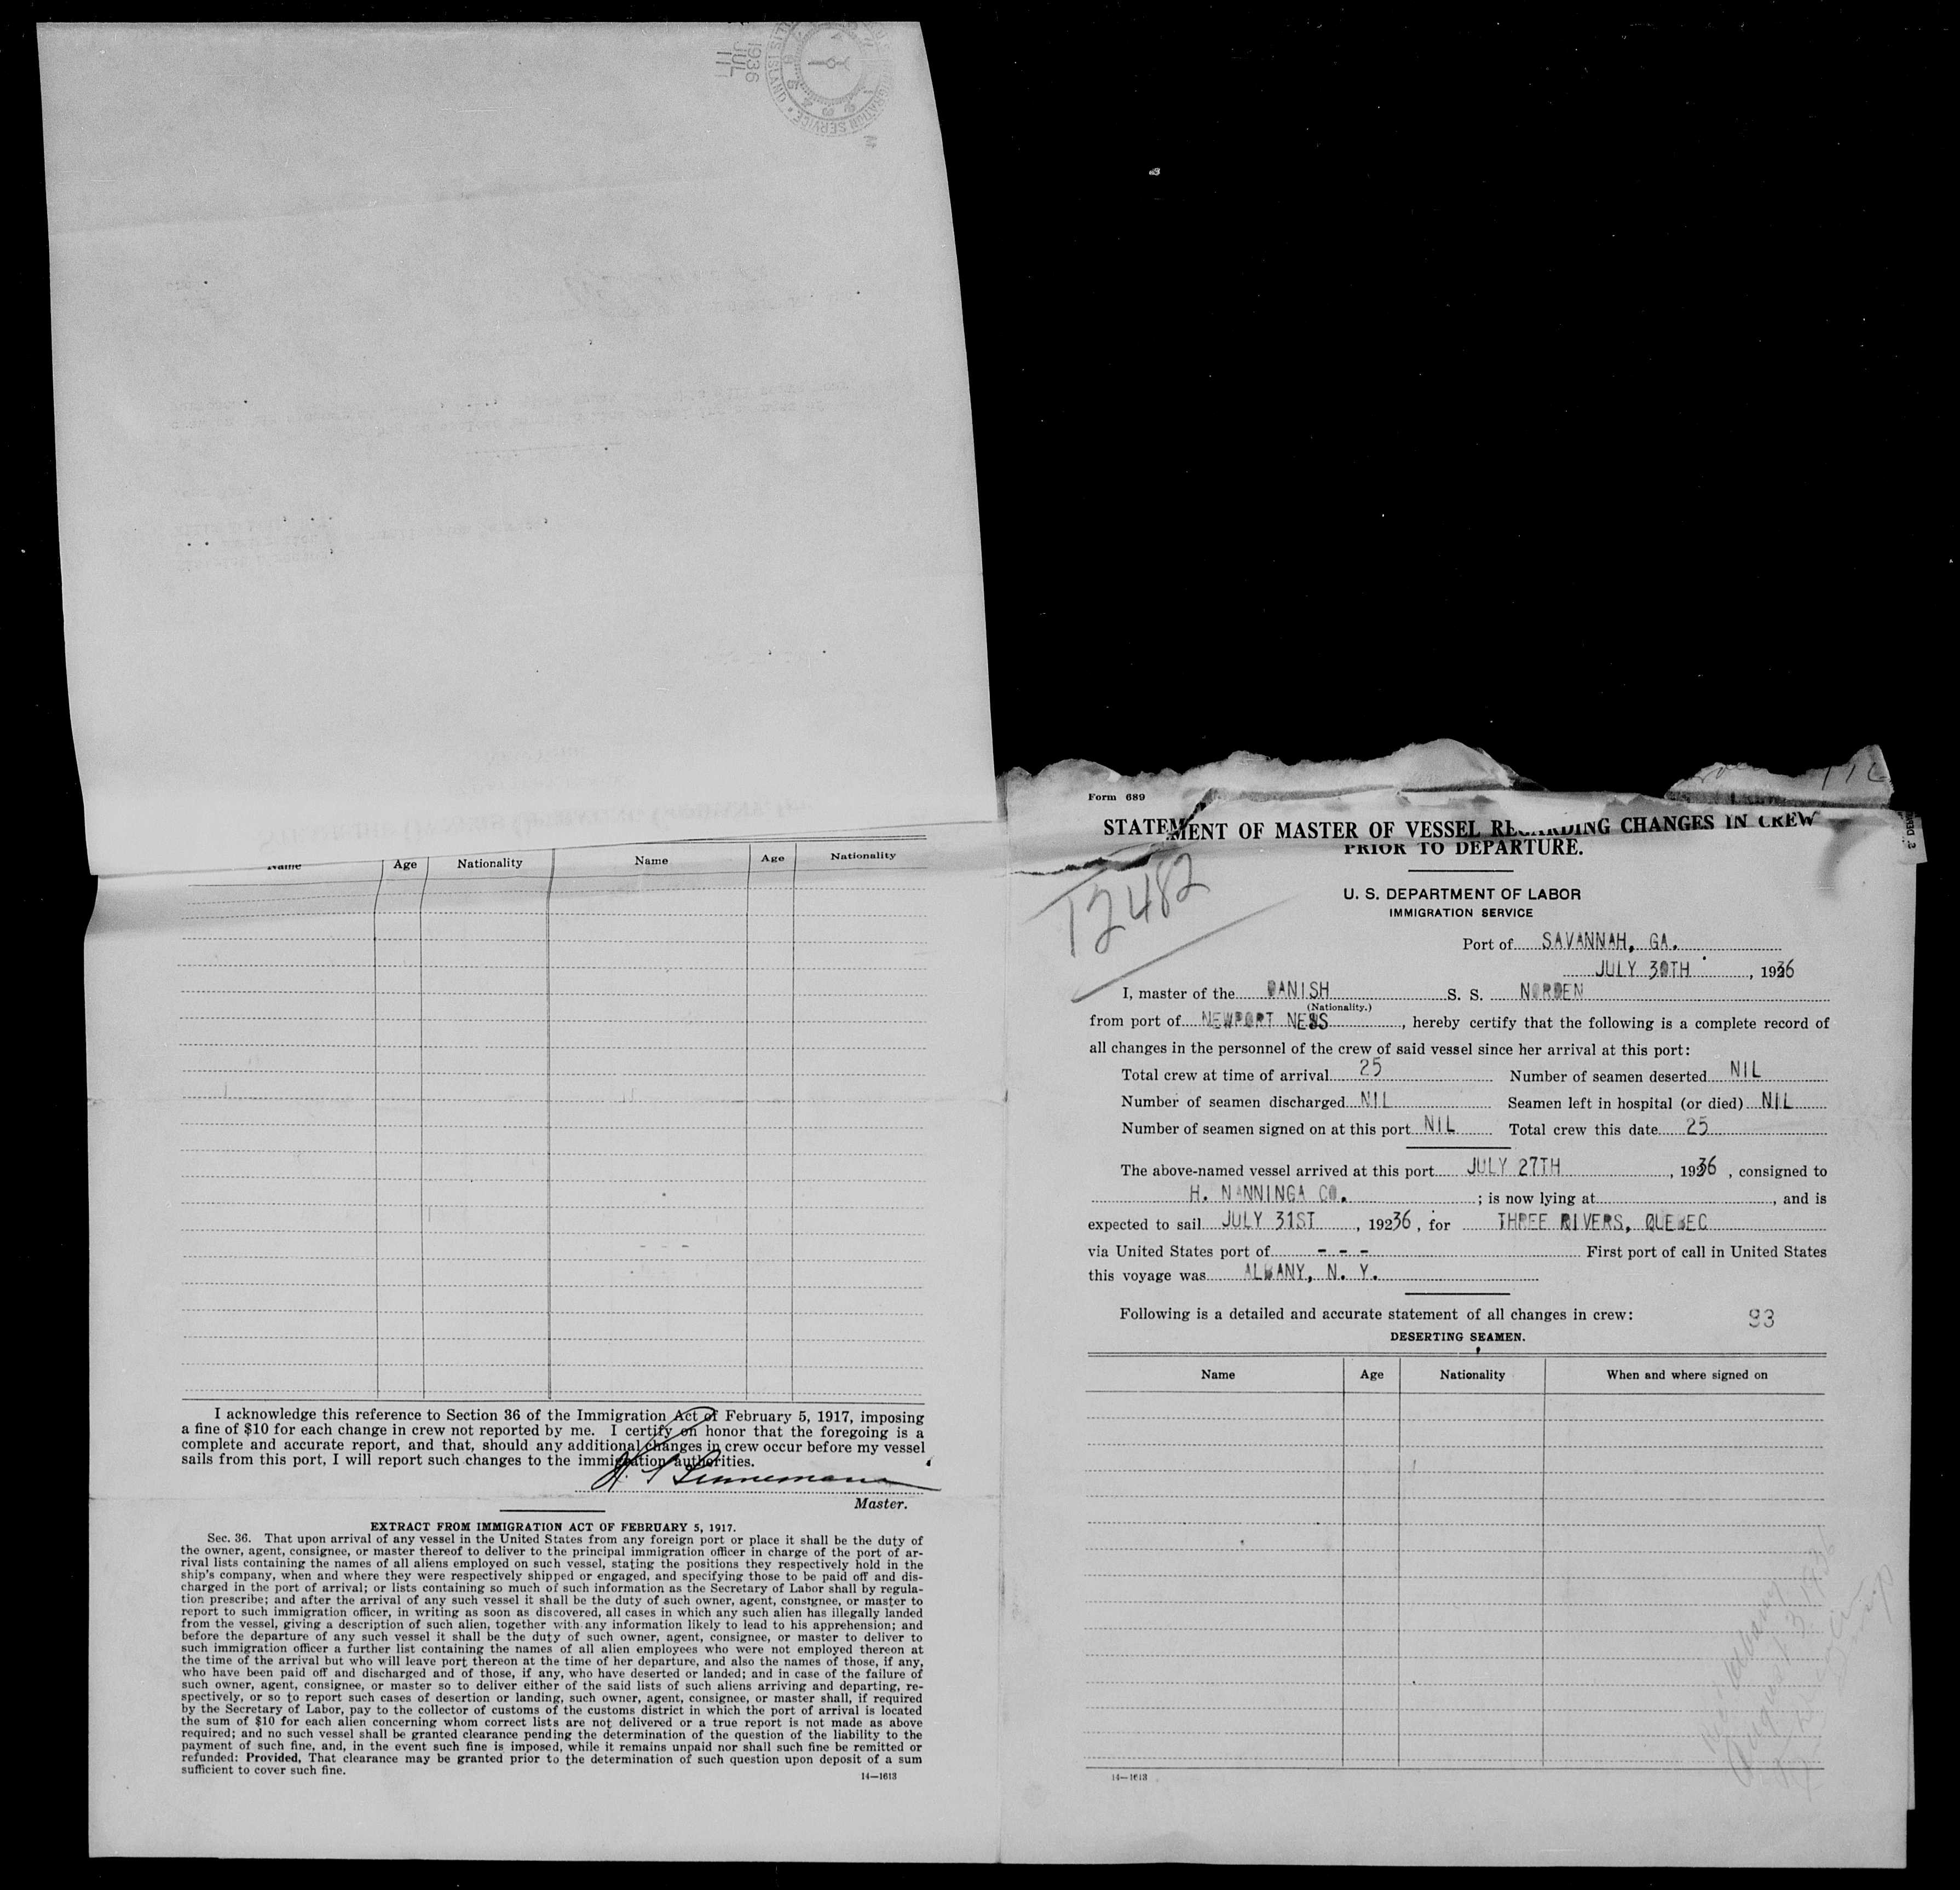 1936
JUL
11
IMMIGRATION SERVICE
ELLIS ISLAND
Name Age Nationality Name Age Nationality
I acknowledge this reference to Section 36 of the Immigration Act of February 5, 1917, imposing
a fine of $10 for each change in crew not reported by me. I certify on honor that the foregoing is a
complete and accurate report, and that, should any additional changes in crew occur before my vessel
sails from this port, I will report such changes to the immigration authorities.
Master.
EXTRACT FROM IMMIGRATION ACT OF FEBRUARY 5, 1917.
Sec. 36. That upon arrival of any vessel in the United States from any foreign port or place it shall be the duty of
the owner, agent, consignee, or master thereof to deliver to the principal immigration officer in charge of the port of ar-
rival lists containing the names of all aliens employed on such vessel, stating the positions they respectively hold in the
ship's company, when and where they were respectively shipped or engaged, and specifying those to be paid off and dis-
charged in the port of arrival; or lists containing so much of such information as the Secretary of Labor shall by regula-
tion prescribe; and after the arrival of any such vessel it shall be the duty of such owner, agent, consignee, or master to
report to such immigration officer, in writing as soon as discovered, all cases in which any such alien has illegally landed
from the vessel, giving a description of such alien, together with any information likely to lead to his apprehension; and
before the departure of any such vessel it shall be the duty of such owner, agent, consignee, or master to deliver to
such immigration officer a further list containing the names of all alien employees who were not employed thereon at
the time of the arrival but who will leave port thereon at the time of her departure, and also the names of those, if any,
who have been paid off and discharged and of those, if any, who have deserted or landed; and in case of the failure of
such owner, agent, consignee, or master so to deliver either of the said lists of such aliens arriving and departing, re-
spectively, or so to report such cases of desertion or landing, such owner, agent, consignee, or master shall, if required
by the Secretary of Labor, pay to the collector of customs of the customs district in which the port of arrival is located
the sum of $10 for each alien concerning whom correct lists are not delivered or a true report is not made as above
required; and no such vessel shall be granted clearance pending the determination of the question of the liability to the
payment of such fine, and, in the event such fine is imposed, while it remains unpaid nor shall such fine be remitted or
refunded: Provided, That clearance may be granted prior to the determination of such question upon deposit of a sum
sufficient to cover such fine.
14—1613
Form 689
STATEMENT OF MASTER OF VESSEL REGARDING CHANGES IN CREW
PRIOR TO DEPARTURE.
12482
U. S. DEPARTMENT OF LABOR
IMMIGRATION SERVICE
Port of SAVANNAH, GA.
JULY 30TH, 1936
I, master of the DANISH S. S. NORDEN
(Nationality.)
from port of NEWPORT NEWS, hereby certify that the following is a complete record of
all changes in the personnel of the crew of said vessel since her arrival at this port:
Total crew at time of arrival 25 Number of seamen deserted NIL
Number of seamen discharged NIL Seamen left in hospital (or died) NIL
Number of seamen signed on at this port NIL Total crew this date 25
The above-named vessel arrived at this port JULY 27TH, 1936, consigned to
H. NANNINGA CO. ; is now lying at , and is
expected to sail JULY 31ST, 19236, for THREE RIVERS, QUEBEC
via United States port of - - - First port of call in United States
this voyage was ALBANY, N. Y.
Following is a detailed and accurate statement of all changes in crew:
93
DESERTING SEAMEN.
Name Age Nationality When and where signed on
August 3, 1936
14—1613